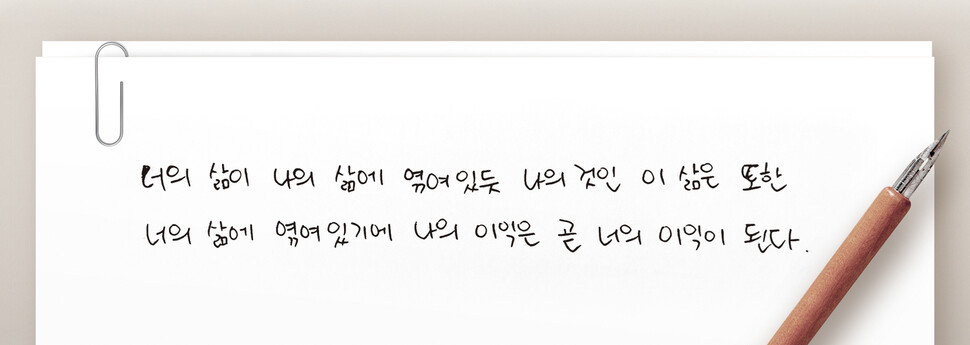 너의 삶이 나의 삶에 엮여있듯 나의 것인 이 삶은 또한
너의 삶에 엮여있기에 나의 이익은 곧 너의 이익이 된다.